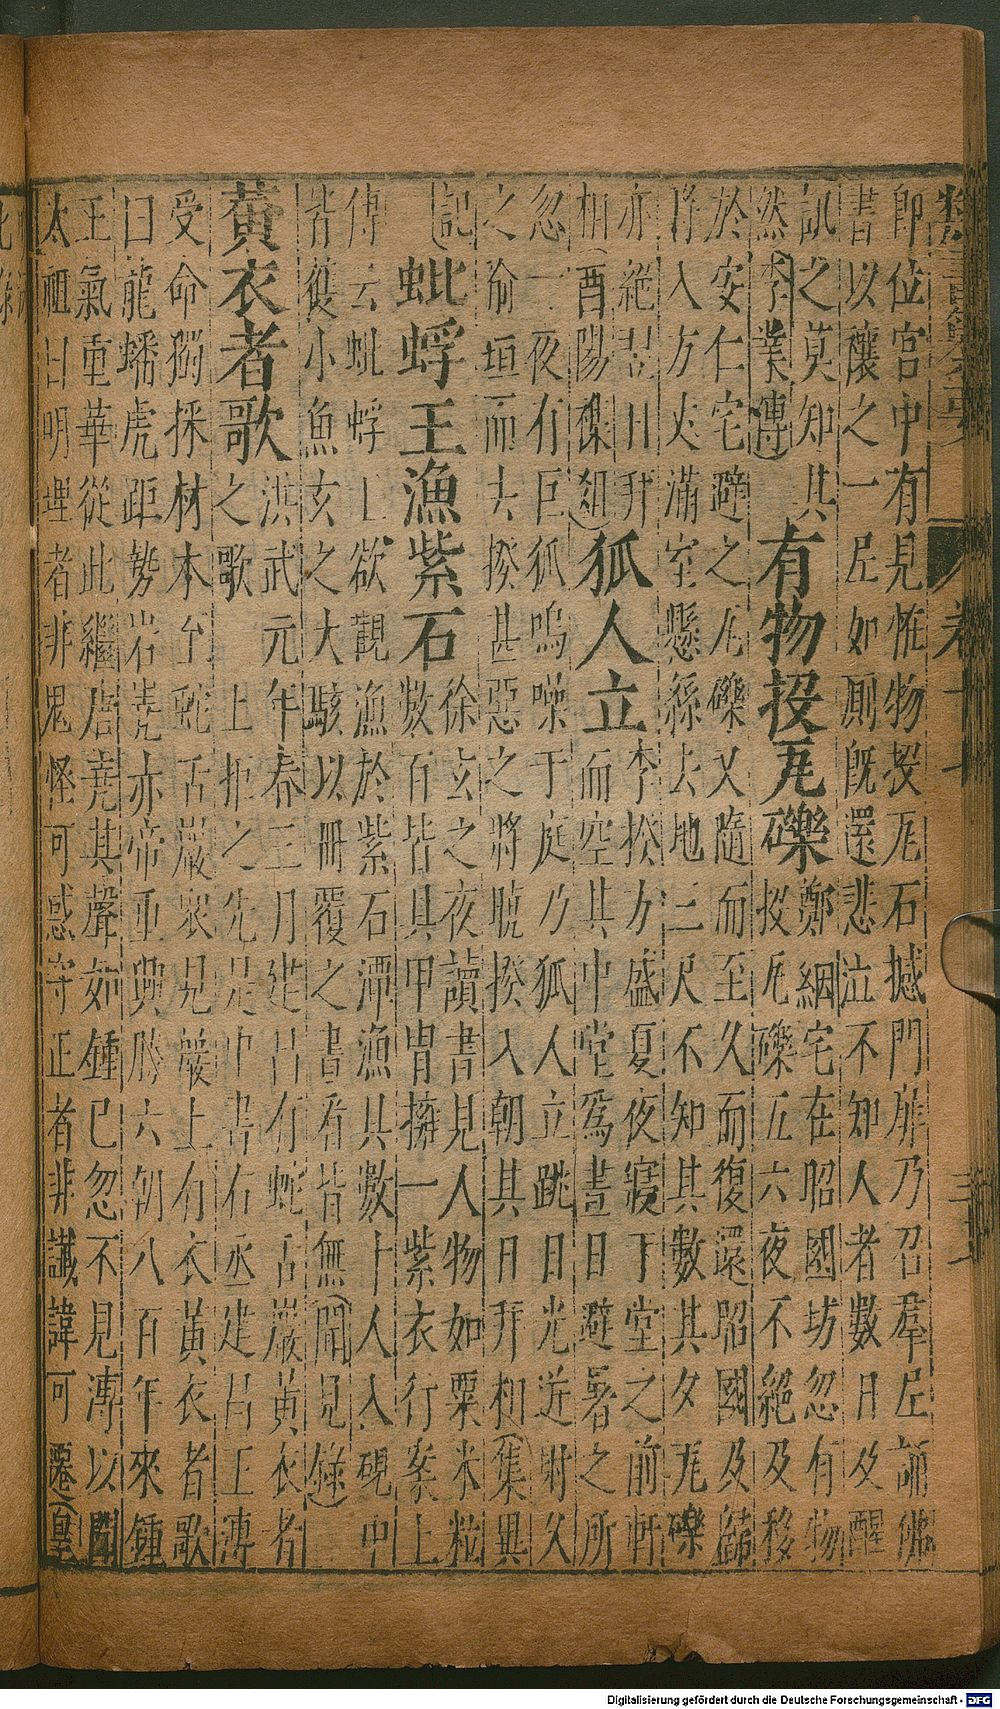 卽位宮中有見恠物投瓦石撼門扉乃召羣尼誦佛
書以禳之一尼如厠旣還悲泣不知人者數日及醒
訊之莫知其
然(李業傳)
有物投瓦礫
鄭絪宅在昭國坊忽有物
投瓦礫五六夜不絕及移
於安仁宅避之瓦礫又隨而至久而復還昭國及歸
將入方丈滿室懸絲去地三尺不知其數其夕瓦礫
亦絕翌日拜
相(酉陽雜俎)
狐人立
李揆方盛夏夜寢于堂之前軒
而空其中堂爲晝日避暑之所
忽一夜有巨狐鳴噪于庭乃狐人立跳目光迸射久
之逾垣而去揆甚惡之將曉揆入朝其日拜相(集異
記)
蚍蜉王漁紫石
徐玄之夜讀書見人物如粟米粒
數百皆具甲冑擁一紫衣行案上
傳云蚍蜉王欲觀漁於紫石潭漁具數十人入硯中
皆獲小魚玄之大駭以冊覆之書看皆無(聞見錄)
黃衣者歌
洪武元年春三月建呂有蛇舌巖黃衣者
之歌 上拒之先是中書右丞建呂王溥
受命彌採材木至蛇舌巖衆見巖上有衣黃衣者歌
曰龍蟠虎距勢岩堯亦帝重興勝六朝八百年來鍾
王氣重華從此繼唐堯其聲如鍾已忽不見溥以聞
太祖曰明理者非鬼怪可惑守正者非讖諱可(皇
Digitalisierung gefördert durch die Deutsche Forschungsgemeinschaft - DFG